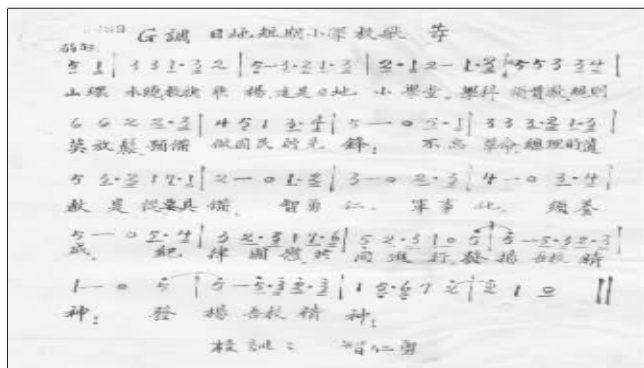 G調 日地短期小学校歌
5 1 | 3 3 1·3 2 | 5 — 3·2 1·3 | 2·1 2 — 1·2 | 5 5 3 3 4 |
山環水 校旗飛揚 這是日地小學堂 學科 須貫 規則
6 6 2 2·3 | 4 5 1 3·4 | 5 — 0 5·1 | 3 3 3·2 1·3 |
英放鬆 預備做國民的先鋒； 不忘革命 總理的遺
5 3·2 1 7·1 | 2 — 0 1·2 | 3 — 0 2·3 | 4 — 0 3·4 |
教 是 具備 智勇仁 軍事化 須養
5 — 0 5·4 | 3 2·3 1 7·6 | 5 2·3 1 0 5 | 5 — 5·3 2·3 |
成 紀律 同進行 發揚吾校精
1 — 0 5 | 5 — 5·3 2·3 | 1 5·6 7 2 | 2 1 0 ||
神； 發揚吾校精神；
校訓： 智仁勇